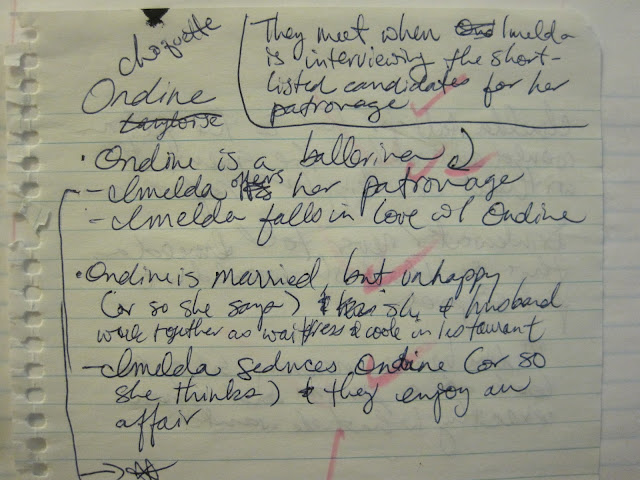 choquette
Ondine
They meet when Imelda
is interviewing the short-
listed candidates for her
patronage
· Ondine is a ballerina
- Imelda offers her patronage
- Imelda falls in love w/ Ondine
· Ondine is married, but unhappy
(or so she says) & she & husband
work together as waitress & cook in restaurant
- Imelda seduces Ondine (or so
she thinks) & they enjoy an
affair